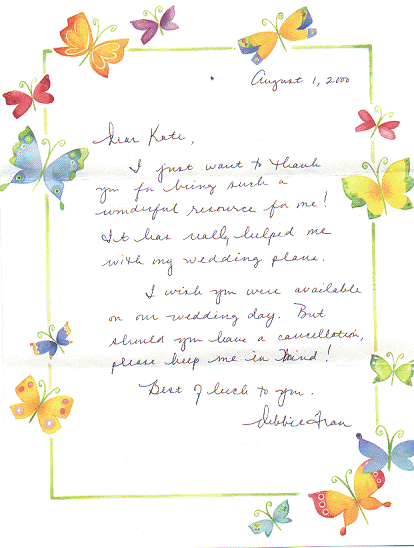 August 1, 2000
Dear Kate,
I just want to thank
you for being such a
wonderful resource for me!
It has really helped me
with my wedding plans.
I wish you were available
on our wedding day. But
should you have a cancellation,
please keep me in mind!
Best of luck to you.
Debbie Tran